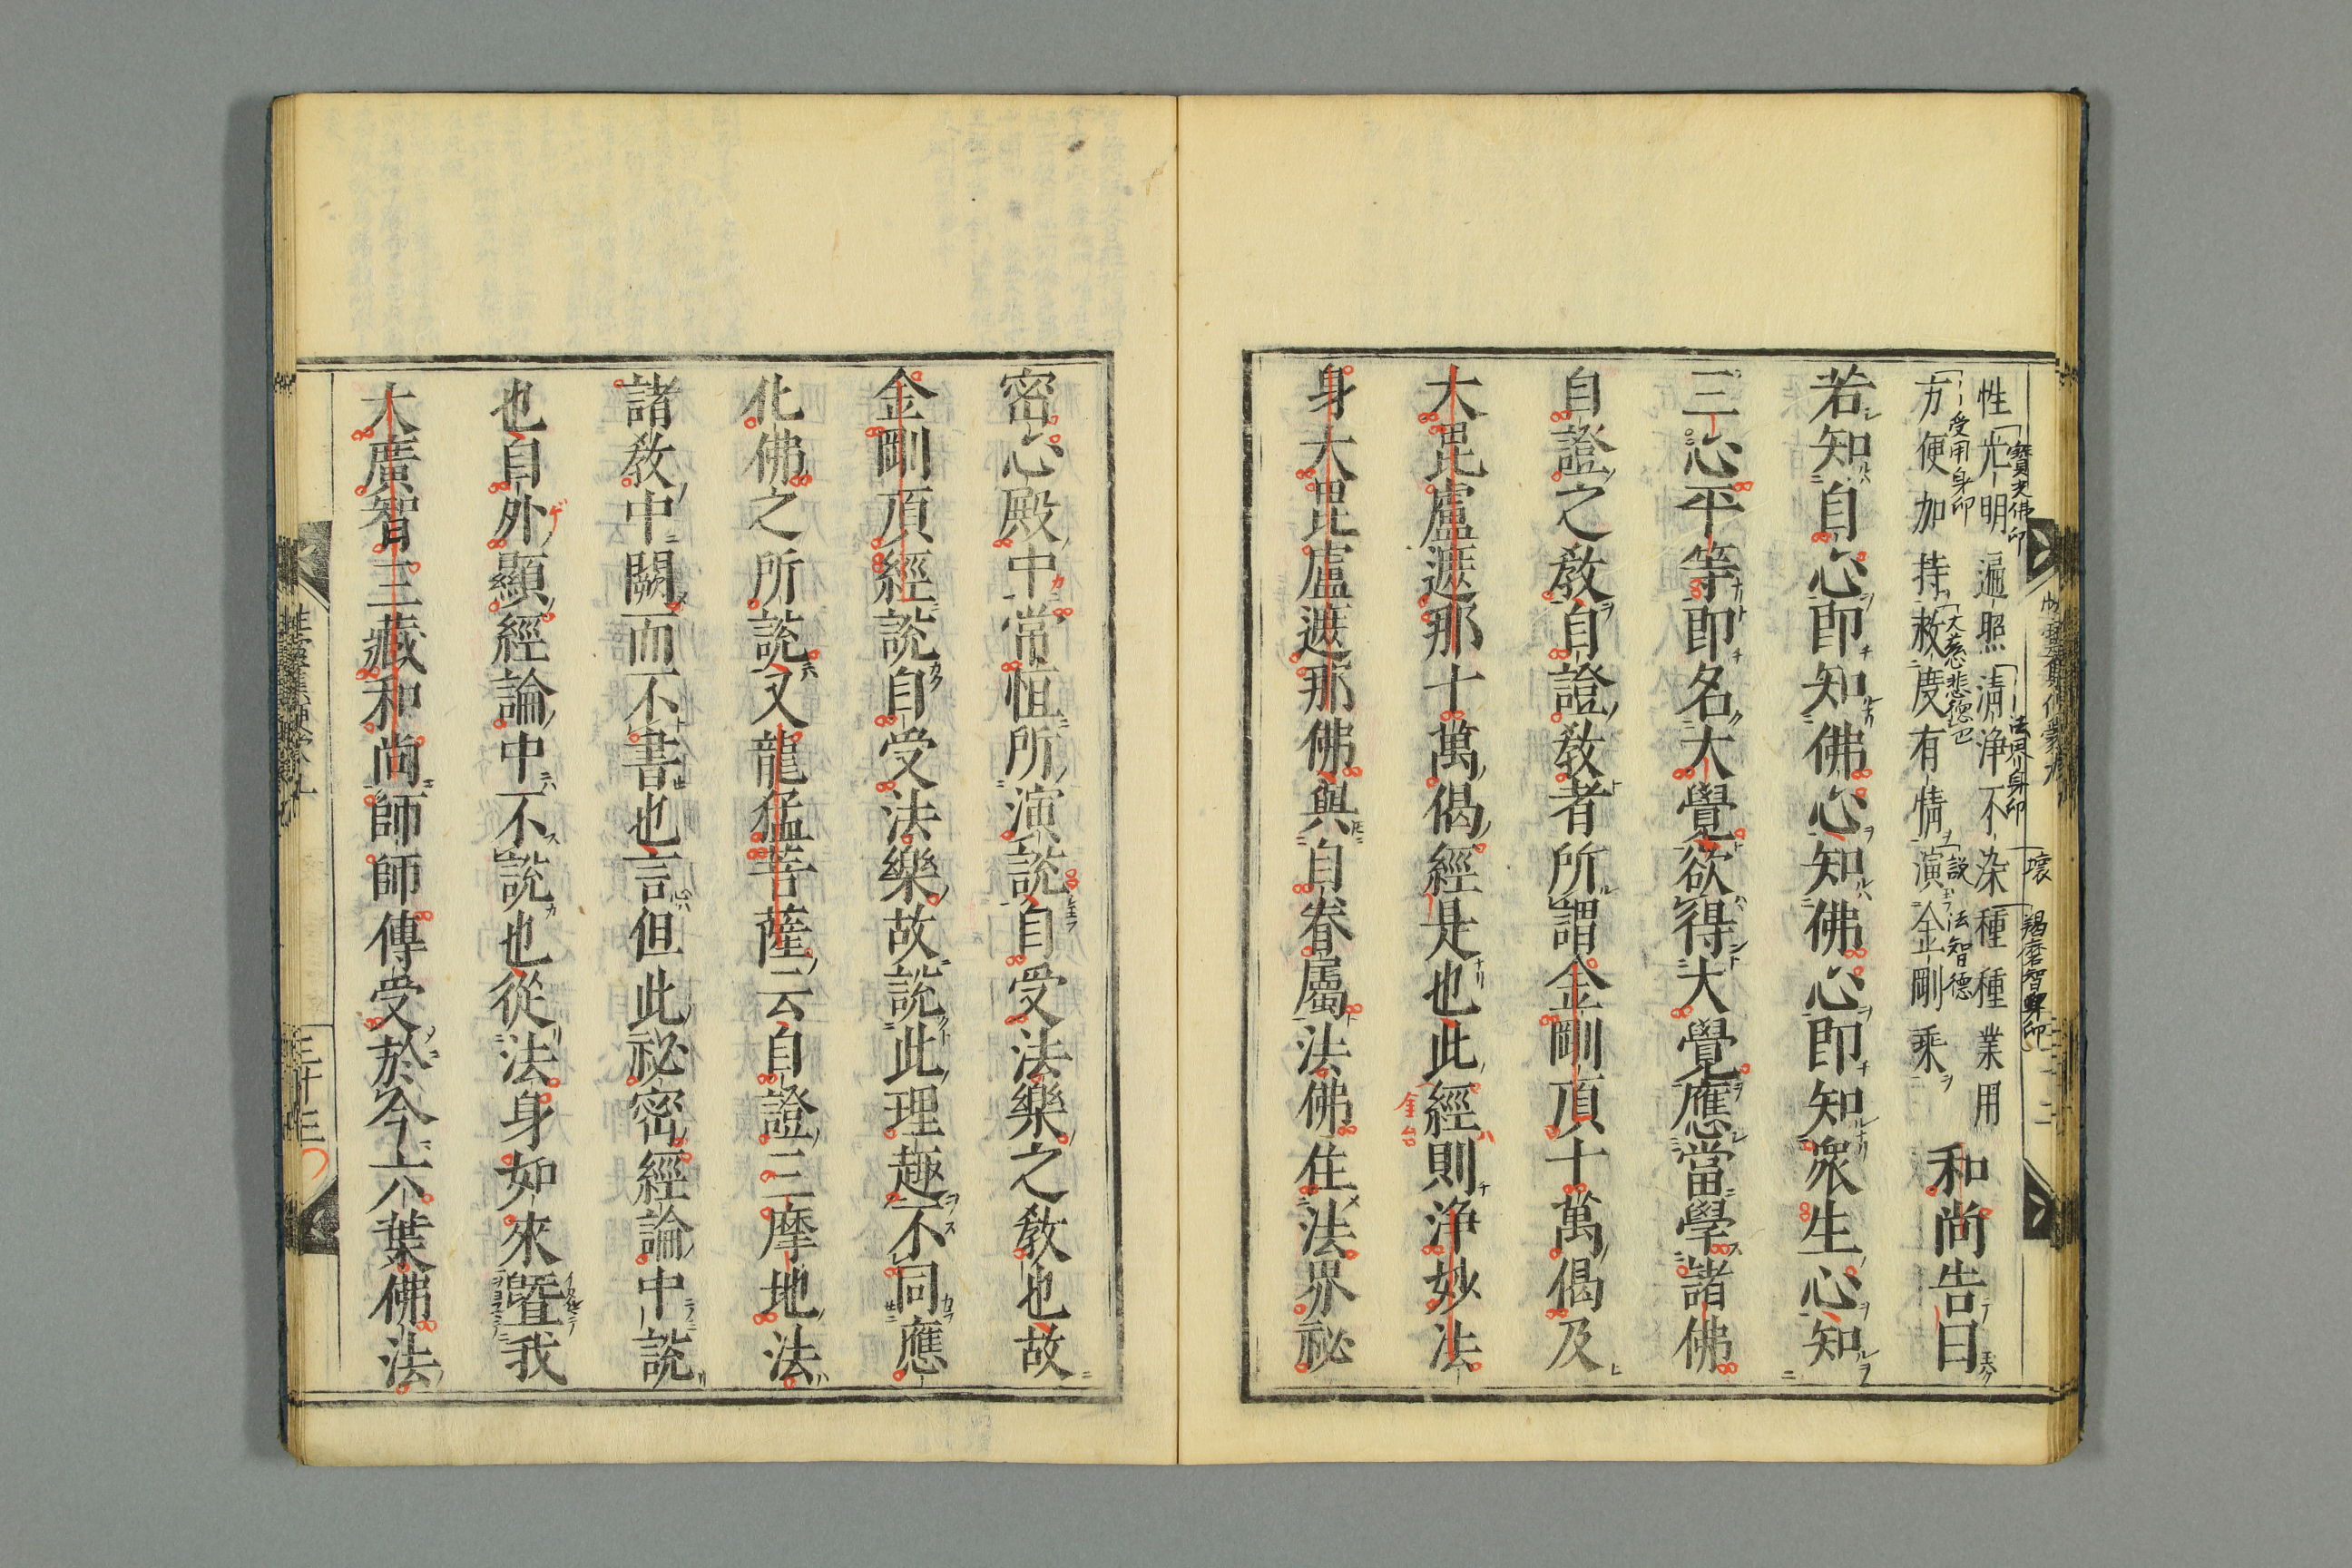 性光明遍照清浄不染種種業用
方便加持救度有情演金剛乘
和尚告曰
若知自心即知佛心知佛心即知衆生心知
三心平等即名大覺欲得大覺應當學諸佛
自證之教自證教者所謂金剛頂十萬偈及
大毘盧遮那十萬偈經是也此經則浄妙法
身大毘盧遮那佛與自眷屬法佛住法界祕
密心殿中常恒所演説自受法樂之教也故
金剛頂經説自受法樂故説此理趣不同應
化佛之所説又龍猛菩薩云自證三摩地法
諸教中闕而不書也言但此祕密經論中説
也自外顯經論中不説也從法身如來曁我
大廣智三藏和尚師師傳受於今六葉佛法
三十三
寶光佛印
受用身印
法界身印
大慈悲德
説
法智德
壞
羯磨智印
金台